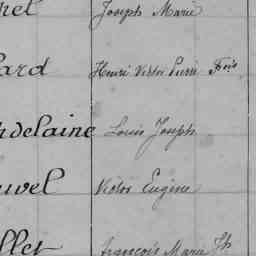 rel Joseph Marie
ard Henri Victor Pierre Fçois
rdelaine Louis Joseph
uvel Victor Eugène
llet François Marie Th